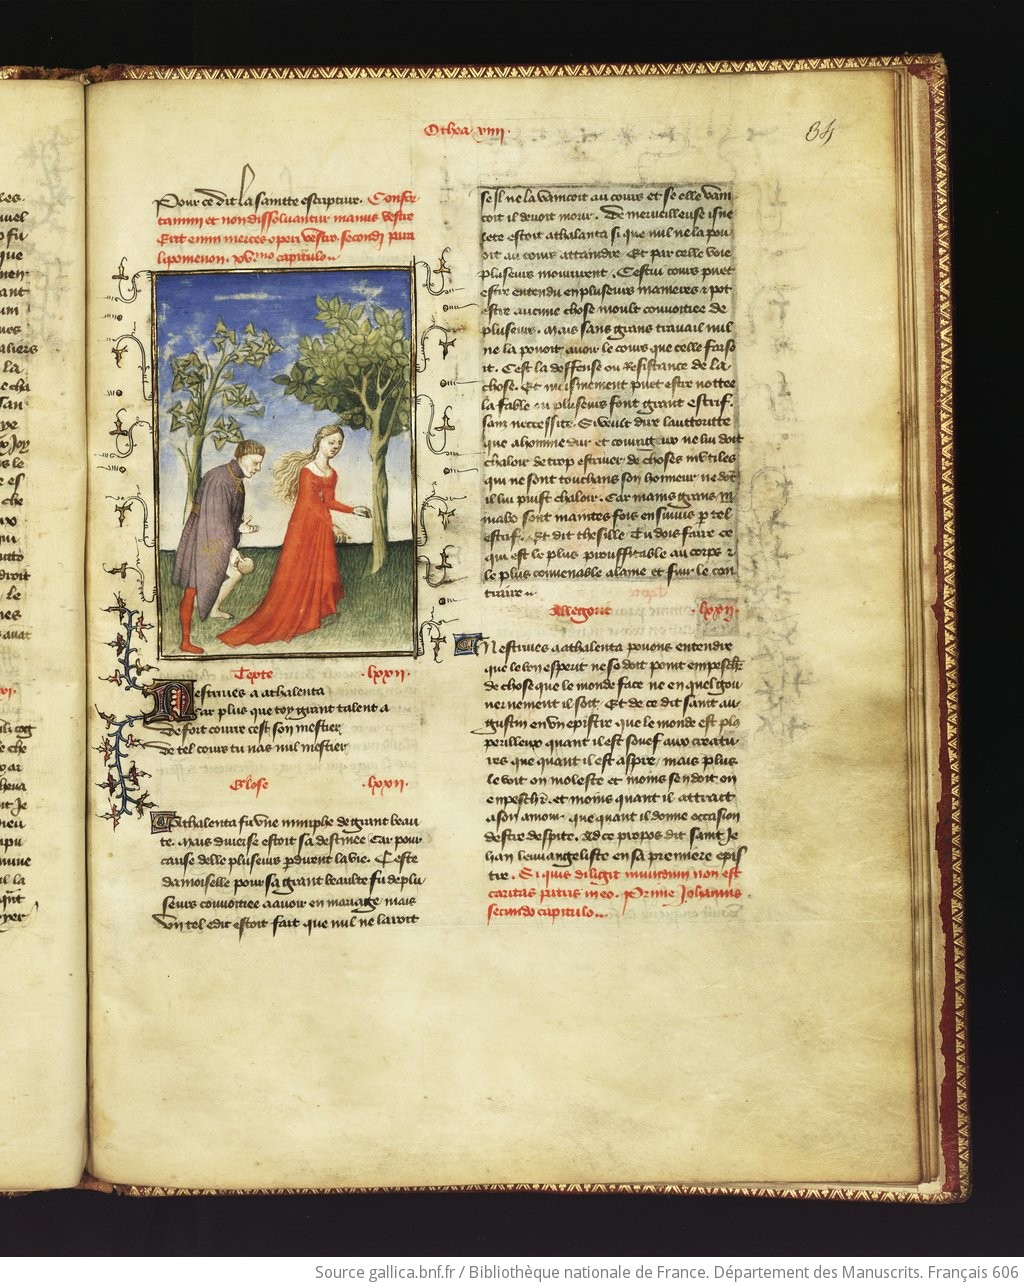 Othea viiii.
34
Pour ce dit la saintte escripture. Confor
tamini et non dissolvantur manus vestre
Erit enim merces operi vestro. secondi para
lipomenon. xv.mo capitulo..
Texte .lxxii.
N estrives a athalenta
Car plus que toy grant talent a
De fort courir cest son mestier
De tel cours tu nas nul mestier
Glose .lxxii.
Athalenta fu une nimphe de grant beau
te. Mais diverse estoit sa destinee Car pour
cause delle pluseurs perdirent la vie. Ceste
damoiselle pour sa grant beaulte fu de plu
seurs convoitiee a avoir en mariage mais
un tel edit estoit fait que nul ne laroit
se il ne la vaincoit au cours et se elle vain
coit il devoit morir. De merveilleuse isne
lete estoit athalanta si que nul ne la pou
oit au cours attaindre Et par celle voie
pluseurs moururent. Cestui cours puet
estre entendu en pluseurs manieres et pot
estre aucune chose moult convoitiee de
pluseurs. Mais sans grans travail nul
ne la pouoit avoir le cours que celle faiso
it. Cest la deffense ou Resistance de la
chose. Et mesmement puet estre nottee
la fable que pluseurs font grant estrif.
sans neccessite. Si veult dire lauttoritte
que a homme dur et couraigeux ne lui doit
chaloir de trop estriver de choses inutiles
qui ne sont touchans son honneur ne dont
il lui puist chaloir. Car mains grans in
maulx sont maintes fois ensuivis par tel
estrif. Et dit thesille Tu dois faire ce
qui est le plus prouffitable au corps et
le plus convenable a lame et fuir le con
traire..
Allegorie .lxxii.
N estrives a athalenta pouons entendre
que le bon esperit ne se doit point empeschier
de chose que le monde face ne en quel gou
vernement il soit. Et de ce dit saint au
gustin en un epistre que le monde est plus
perilleux quant il est souef aux creatu
res que quant il est aspre, mais plus
le voit on moleste et moins sen doit on
empeschier. et moins quant il attrait
a son amour que quant il donne occasion
destre despite. Ad ce propos dit saint Je
han leuvangeliste en sa premiere epis
tre. Si quis diligit mundum non est
caritas patris in eo. Prime Johannis
secundo capitulo...
Source gallica.bnf.fr / Bibliothèque nationale de France. Département des Manuscrits. Français 606